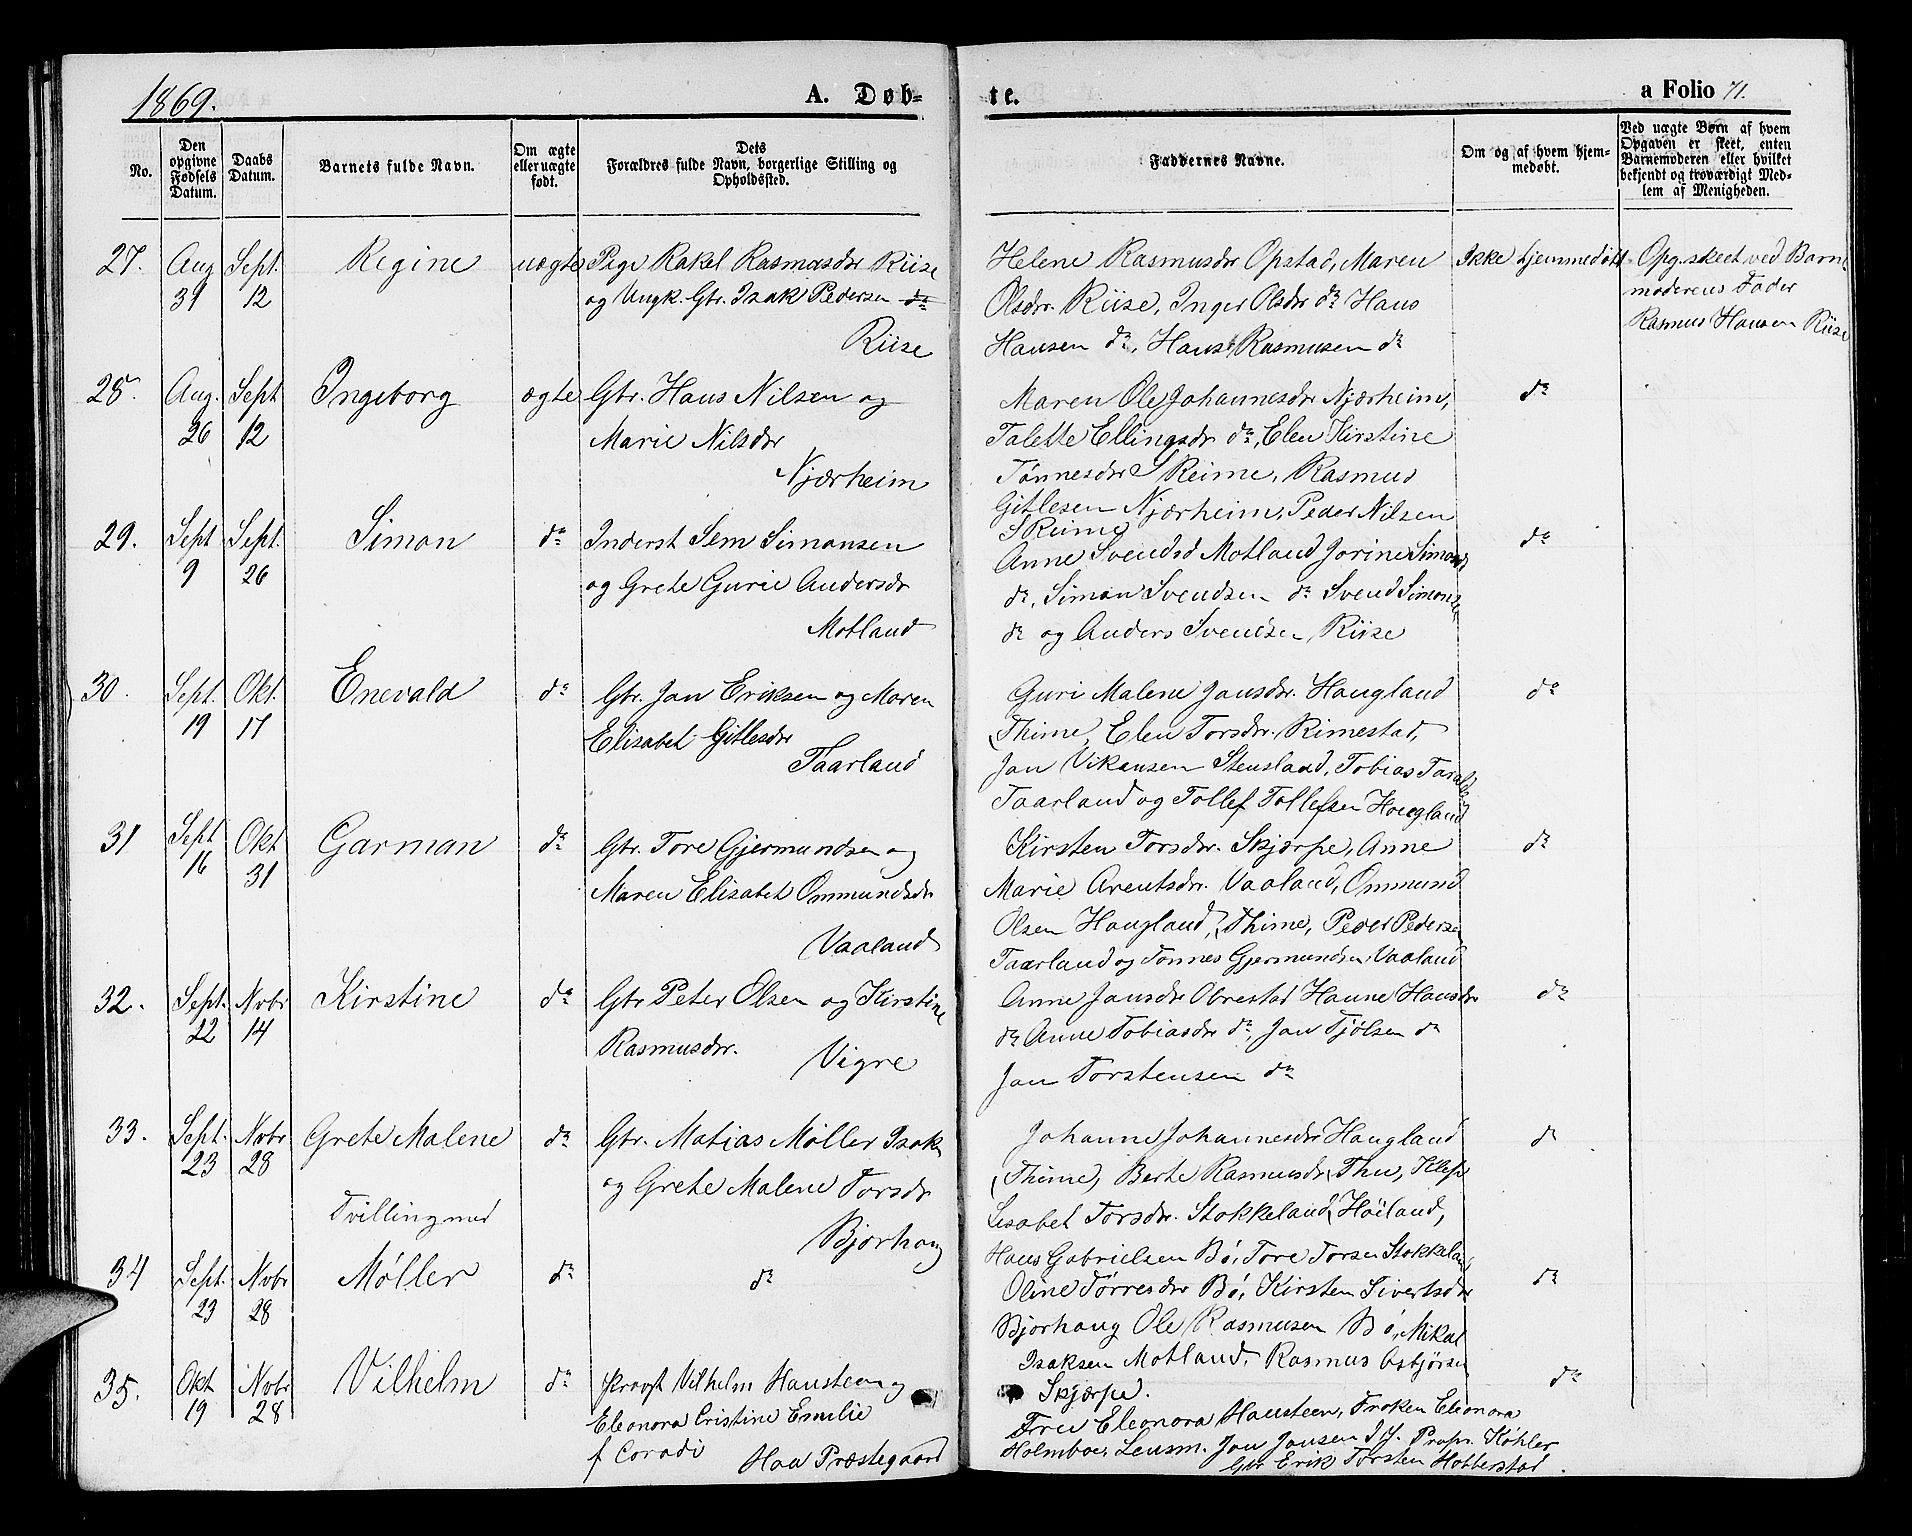 1869.
A. Døb-
te.
a Folio 71.
No.
Den opgivne Fødsels Datum.
Daabs Datum.
Barnets fulde Navn.
Om ægte eller uægte født.
Dets Forældres fulde Navn, borgerlige Stilling og Opholdssted.
Faddernes Navne.
Om og af hvem hjemmedøbt.
Ved uægte Børn af hvem Opgaven er skeet, enten Barnemoderen eller hvilket bekjendt og troværdigt Medlem af Menigheden.
27. Aug 31 Sept. 12 Regine uægte Pige Rakel Rasmusdr Riise
og Ungk. Gbr. Isak Pedersen
Riise
Helene Rasmusdr Opstad, Maren
Olsdr. Riise, Inger Olsdr do Hans
Hansen do, Hans Rasmusen do
Ikke hjemmedøbt
Opg. skeet ved Barne
moderens Fader
Rasmus Hansen Riise
28. Aug. 26 Sept 12 Ingeborg ægte Gbr. Hans Nilsen og
Marie Nilsdr
Njærheim
Maren Ole Johannesdr Njærheim,
Talette Ellingsdr do, Elen Kirstine
Tønnesdr S Reime, Rasmus
Gitlesen Njærheim, Peder Nilsen
S Reime
do
29. Sept 9 Sept. 26 Simon do Inderst Sem Simonsen
og Grete Gurie Andersdr
Motland
Anne Svendsd Motland Jorine Simonsd
do, Simon Svendsen do Svend Simonsen
do og Anders Svendsen Riise
do
30. Sept. 19 Okt. 17 Enevald do Gbr. Jan Eriksen og Maren
Elisabet Gitlesdr
Taarland
Guri Malene Jansdr. Haugland
Thime, Elen Torsdr. Rimestad,
Jan Vikansen Stensland, Tobias
Taarland og Tollef Tollefsen Haugland
do
31 Sept 16 Okt 31 Garman do Gbr. Tore Gjermundsen og
Maren Elisabet Ommundsdr
Vaaland
Kirsten Torsdr. Skjærpe, Anne
Marie Arentsdr. Vaaland, Ommund
Olsen Haugland, Thime, Peder Pedersen
Taarland og Tønnes Gjermundsen Vaaland
do
32. Sept. 22 Nvbr 14 Kirstine do Gbr Peter Olsen og Kirstine
Rasmusdr.
Vigre
Anne Jansdr Obrestad Hanne Hansdr
do Anne Tobiasdr do, Jan Tjølsen do
Jan Torstensen do
do
33. Sept. 23 Nvbr 28 Grete Malene do Gbr. Matias Møller Isak
og Grete Malene Torsdr
Bjorhaug
Tvilling med
Johanne Johannesdr Haugland
Thime, Berte Rasmusdr Thu, Klep
Lisabet Torsdr. Stokkeland, Høiland,
Hans Gabrielsen Bø, Tore Torsen Stokkeland
do
34 Sept. 23 Nvbr 28 Møller do do
Oline Tørresdr Bø, Kirsten Sivertsdr
Bjorhaug Ole Rasmusen Bø, Mikal
Isaksen Motland, Rasmus Asbjørsen
Skjærpe.
do
35. Okt 19 Nvbr 28 Vilhelm do Provst Vilhelm Hansteen og
Eleonora Cristine Emilie
f Coradi
Haa Præstegaard
Frue Eleonora Hansteen, Frøken Eleonora
Holmboe, Lensm. Jan Jansen Propr. Køhler
Gbr Erik Torsten Hobberstad.
do